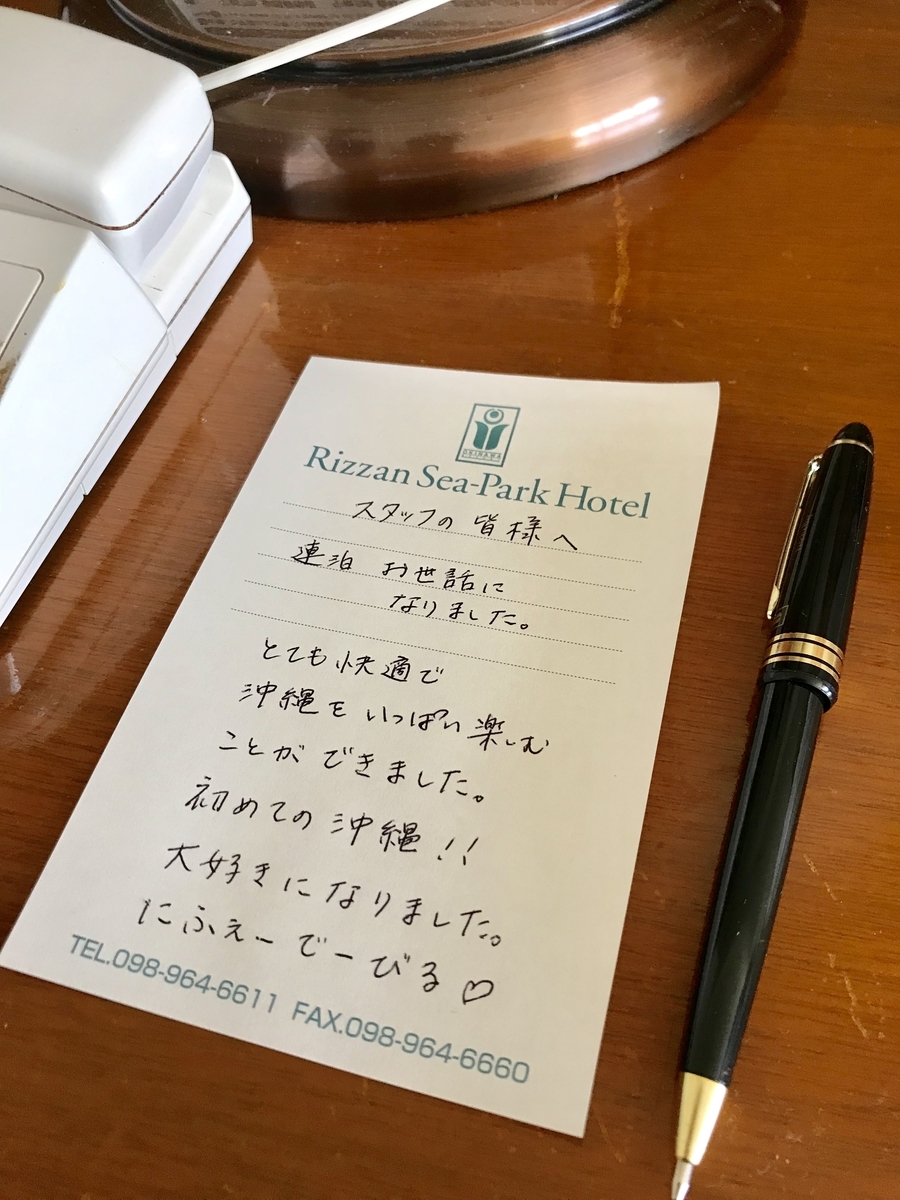 Rizzan Sea-Park Hotel
スタッフの 皆様へ
連泊 お世話に
なりました。
とても快適で
沖縄を いっぱい 楽しむ
ことが できました。
初めての 沖縄!!
大好きに なりました。
にふぇーでーびる♡
TEL.098-964-6611 FAX.098-964-6660